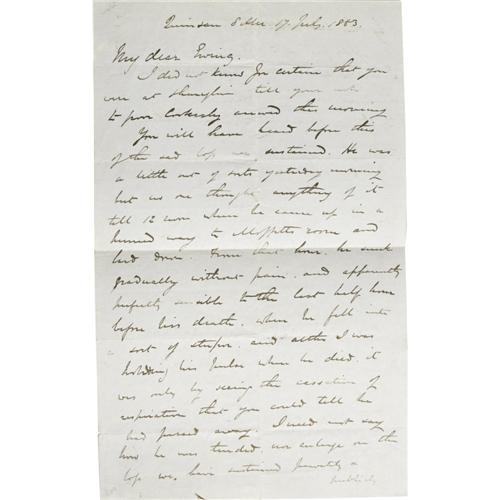 17 July 1883.
My dear Ewing.
I did not know for certain that you
were at Shanghai till your note
to poor arrived this morning
You will have heard before this
of the sad loss we sustained. He was
a little out of sorts yesterday morning
but no one thought anything of it
till 12 noon when he came up in a
hurried way to room and
laid down. From that hour he sunk
gradually without pain and apparently
perfectly sensible to the last half hour
before his death, when he fell into
a sort of stupor and altho I was
holding his when he died it
was only by seeing the cessation of
respiration that you could tell he
had passed away. I need not say
how he was tended nor enlarge on the
loss we have sustained privately &
publicly